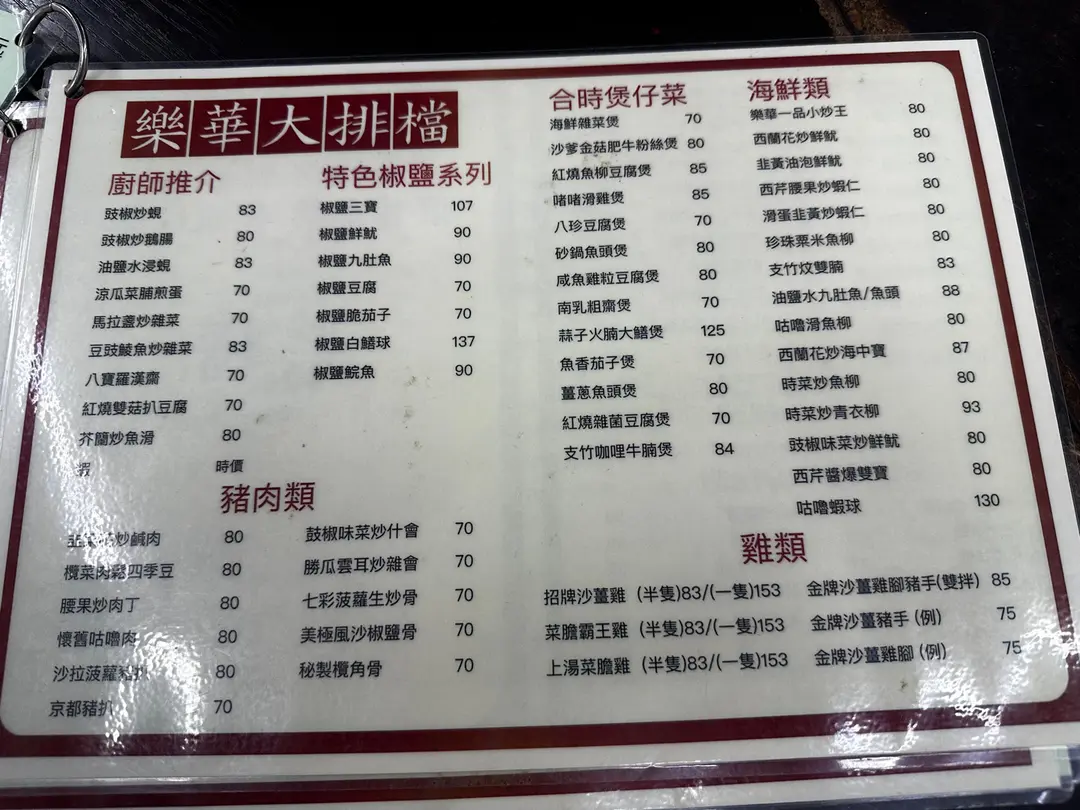 樂華大排檔
廚師推介
豉椒炒蜆 83
豉椒炒鵝腸 80
油鹽水浸蜆 83
涼瓜菜脯煎蛋 70
馬拉盞炒雜菜 70
豆豉鯪魚炒雜菜 83
八寶羅漢齋 70
紅燒雙菇扒豆腐 70
芥蘭炒魚滑 80
蝦 時價
特色椒鹽系列
椒鹽三寶 107
椒鹽鮮魷 90
椒鹽九肚魚 90
椒鹽豆腐 70
椒鹽脆茄子 70
椒鹽白鱔球 137
椒鹽鯇魚 90
豬肉類
炒鹹肉 80
欖菜肉鬆四季豆 80
腰果炒肉丁 80
懷舊咕嚕肉 80
沙拉菠蘿豬扒 80
京都豬扒 70
鼓椒味菜炒什會 70
勝瓜雲耳炒雜會 70
七彩菠蘿生炒骨 70
美極風沙椒鹽骨 70
秘製欖角骨 70
合時煲仔菜
海鮮雜菜煲 70
沙爹金菇肥牛粉絲煲 80
紅燒魚柳豆腐煲 85
啫啫滑雞煲 85
八珍豆腐煲 70
砂鍋魚頭煲 80
咸魚雞粒豆腐煲 80
南乳粗齋煲 70
蒜子火腩大鱔煲 125
魚香茄子煲 70
薑蔥魚頭煲 80
紅燒雜菌豆腐煲 70
支竹咖哩牛腩煲 84
海鮮類
樂華一品小炒王 80
西蘭花炒鮮魷 80
韭黃油泡鮮魷 80
西芹腰果炒蝦仁 80
滑蛋韭黃炒蝦仁 80
珍珠粟米魚柳 80
支竹炆雙腩 83
油鹽水九肚魚/魚頭 88
咕嚕滑魚柳 80
西蘭花炒海中寶 87
時菜炒魚柳 80
時菜炒青衣柳 93
豉椒味菜炒鮮魷 80
西芹醬爆雙寶 80
咕嚕蝦球 130
雞類
招牌沙薑雞 (半隻)83/(一隻)153
菜膽霸王雞 (半隻)83/(一隻)153
上湯菜膽雞 (半隻)83/(一隻)153
金牌沙薑雞腳豬手(雙拌) 85
金牌沙薑豬手 (例) 75
金牌沙薑雞腳 (例) 75